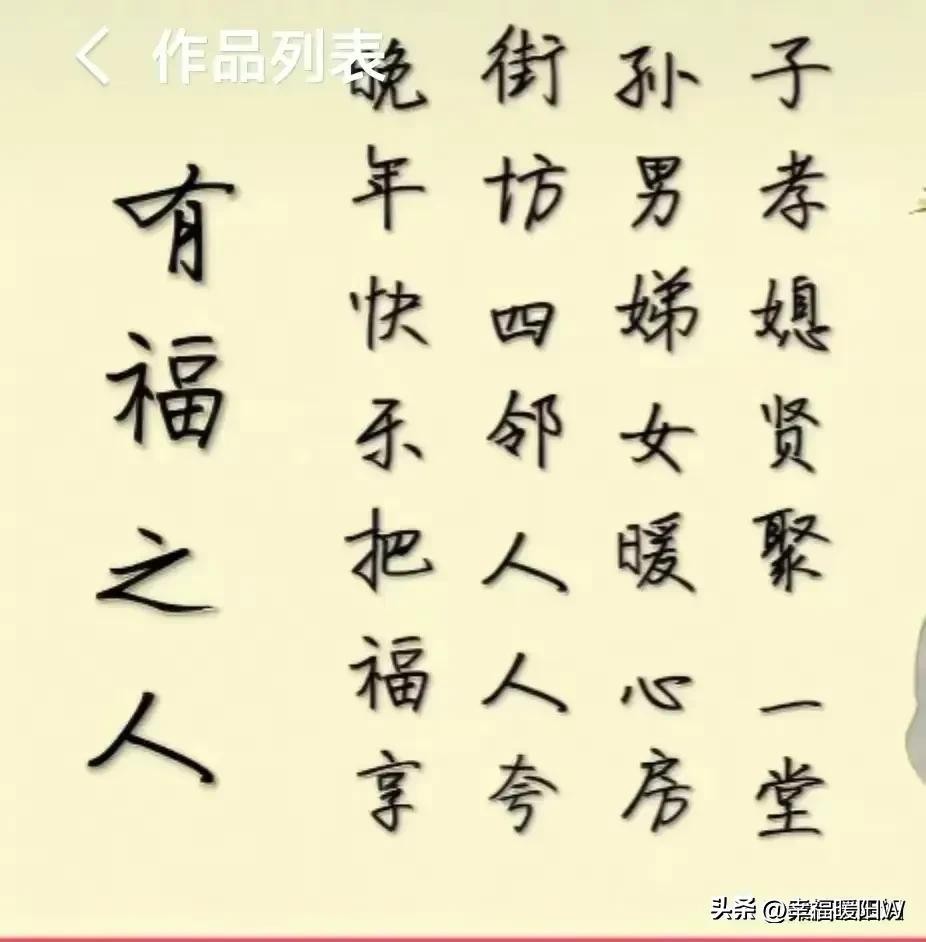 作品列表
子孝媳贤聚一堂
孙男娣女暖心房
街坊四邻人人夸
晚年快乐把福享
有福之人
头条 @幸福暖阳W